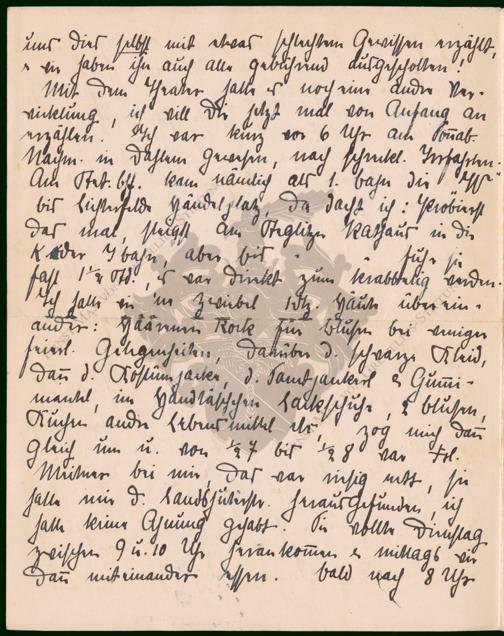 uns dies selbst mit etwas schlechtem Gewissen erzählt,
u wir haben ihn auch alle gebührend ausgescholten!
Mit dem Theater hatte es noch eine andre Ver-
wicklung, ich will Dir jetzt mal von Anfang an
erzählen. Ich war kurz vor 6 Uhr am Sonnab.
Nachm. in Dahlem gewesen, nach schreckl. Irrfahrten.
Am Bhf. kam nämlich als 1. Bahn die
bis Lichterfelde Händelplatz, da dacht ich: Probierst
das mal, steigst am Steglitzer Rathaus in die
K oder J bahn, aber bis fuhr sie
fast 1 1/2 Std., es war direkt zum krabbelig werden.
Ich hatte wie 'ne Zwiebel 1 Dtz. Häute überein-
ander: Rock für Blusen bei
feierl. Gelegenheiten, darüber d. schwarze Kleid,
dann d. Kostümjacke, d. Samtjackerl u Gummi-
mantel, im Handtäschchen Lackschuhe, 2 Blusen,
Kuchen andre Lebensmittel etc, zog mich dann
gleich um u. von 1/2 7 bis 1/2 8 war Frl.
Meitner bei mir, das war riesig nett, sie
hatte mir d. herausgefunden, ich
hatte keine Ahnung gehabt. Sie wollte Dienstag
zwischen 9 u. 10 Uhr herankommen u mittags wir
dann miteinander essen. Bald nach 8 Uhr